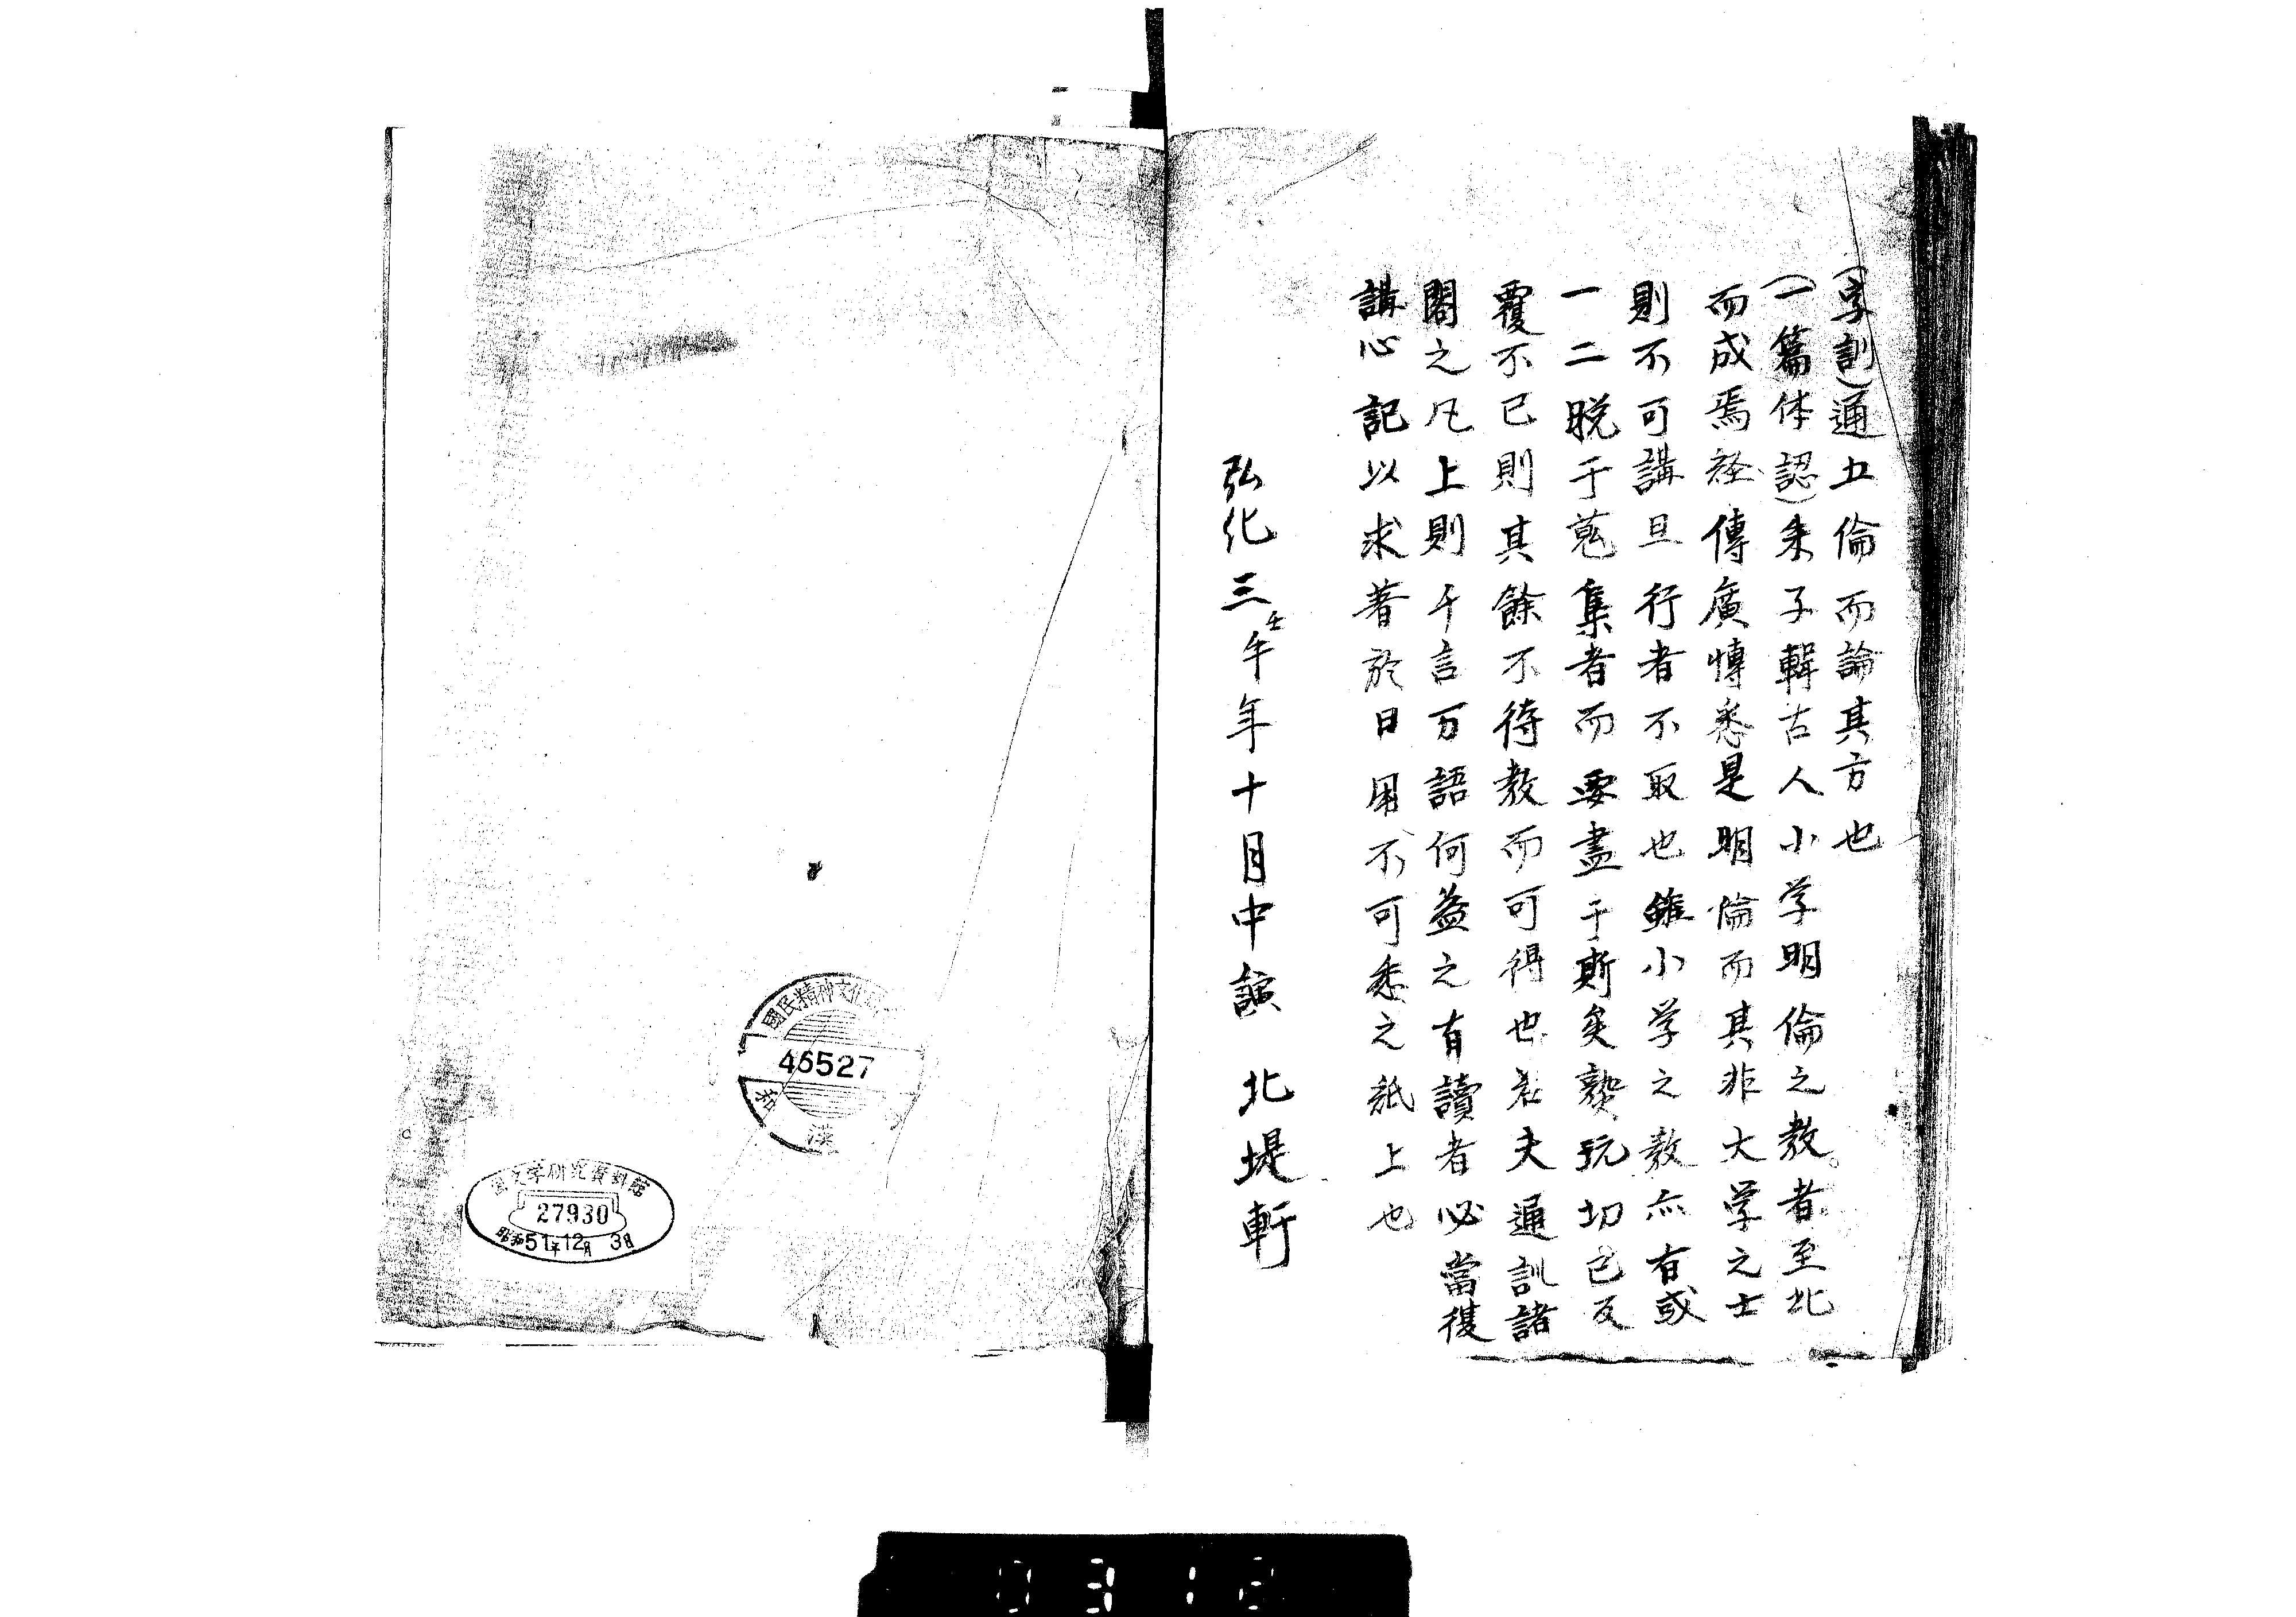 (字訓)通五倫而論其方也
(一篇体認)朱子輯古人小学明倫之教者至此
而成焉経傳廣愽悉是明倫而其非大学之士
則不可講且行者不取也雖小学之教亦有或
一二脱于蒐集者而要盡于斯矣熟玩切已反
覆不已則其餘不待教而可得也若夫通訓諸
閣之凡上則千言万語何益之有讀者必當復
講心記以求著於日用不可悉之紙上也
弘化三壬午年十月中謨 北堤軒
國民精神文化
46527
和
国文学研究資料館
27930
昭和51年12月3日
0318